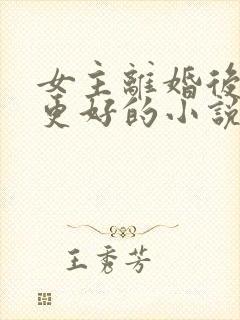 女主離婚後
更好的小說
王秀芳